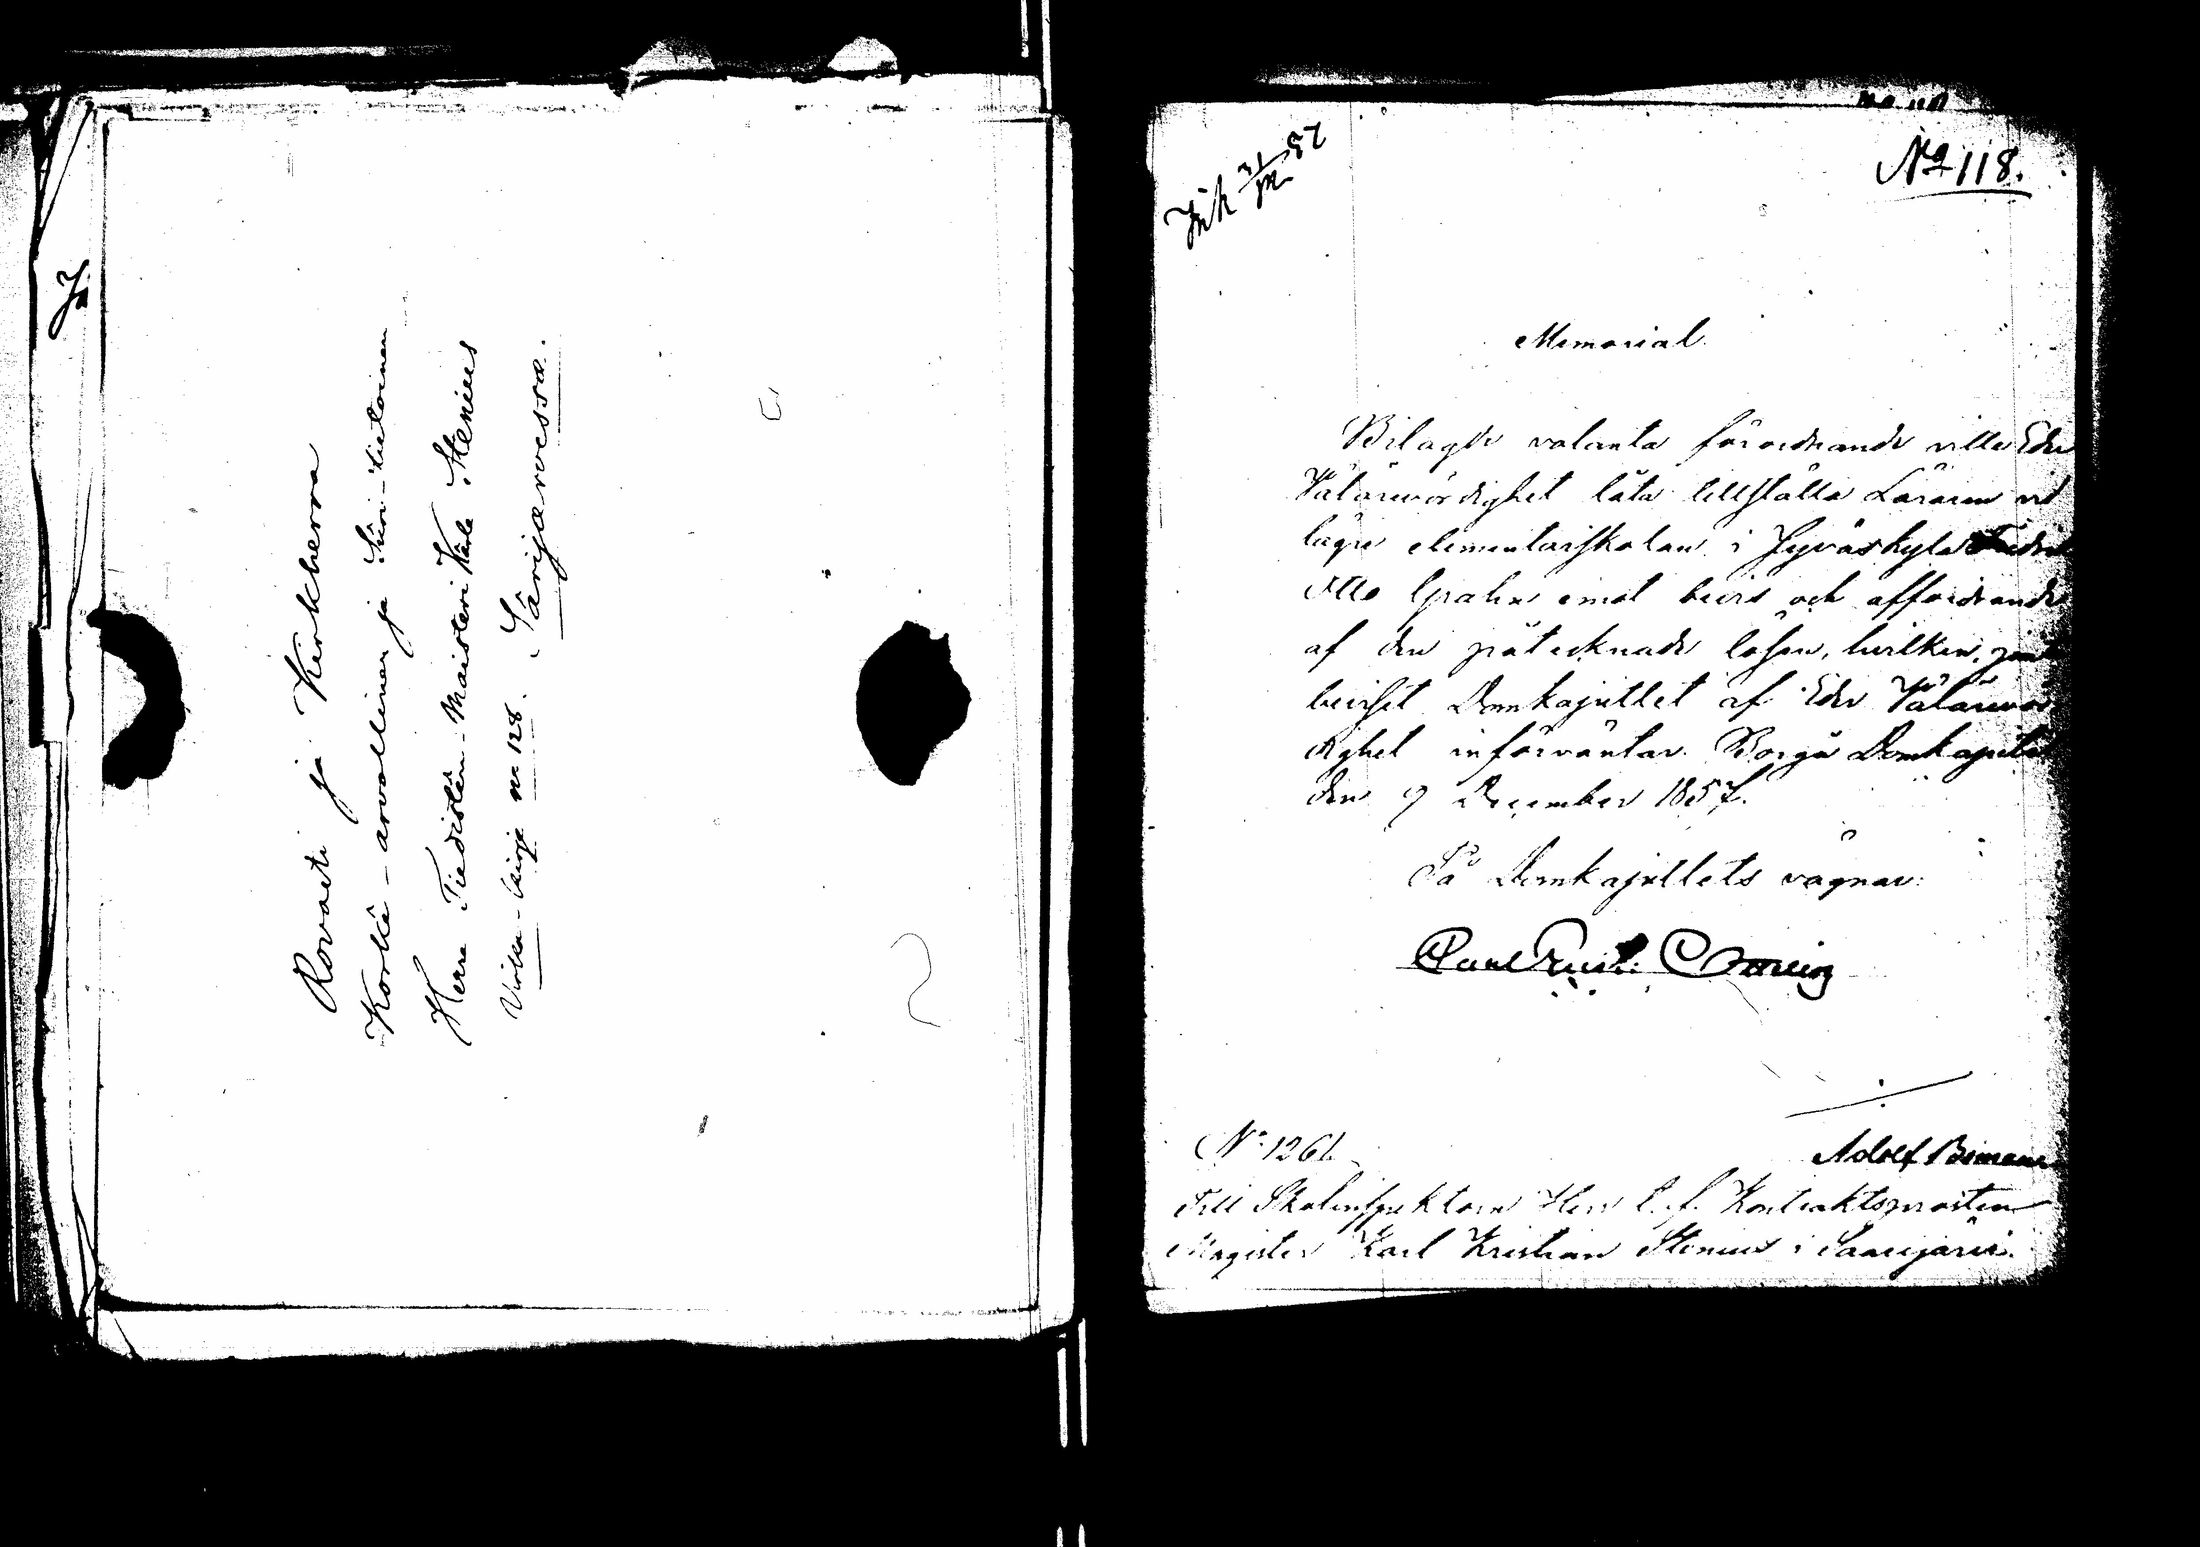 Rovasti ja Kirkkherra
Korkiâ-arvollinen ja Sûri-tietoinen
Herra Tiedistön-Maisteri Kârle Stenius
Virka-kirja no 128. Sârijærvessæ.
Ink 31/12 57
No 118.
Memorial.
Bilagde vakanta förordnande ville Eder
Välärevördighet låta tillställa Läraren vid
lägre elementarskolan i Jyväskylä Fredrik
Otto Grahn emot bevis och affordrande
af den påtecknade lösen, hvilken, jemte
beviset Domkapitlet af Eder Välärevör-
dighet införväntar. Borgå Domkapitel
den 9 December 1857.
På Domkapitlets vägnar:
Paul Ernst
No 1261.
Adolf
Till Skolinspektorn Herr C. f. Kontraktsprosten
Magister Karl Kristian Stenius i Saarijärvi.